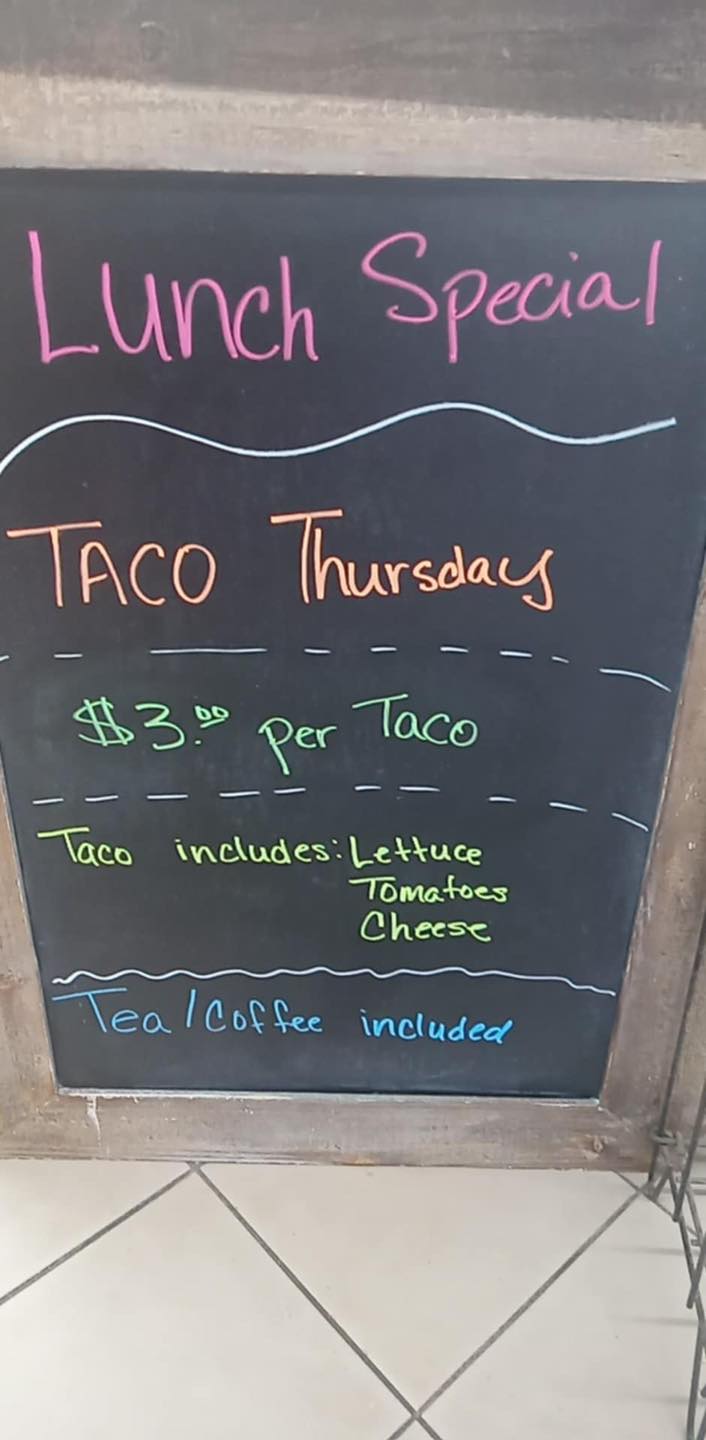 Lunch Special
TACO Thursday
$3.00 per Taco
Taco includes: Lettuce
Tomatoes
Cheese
Tea/Coffee included